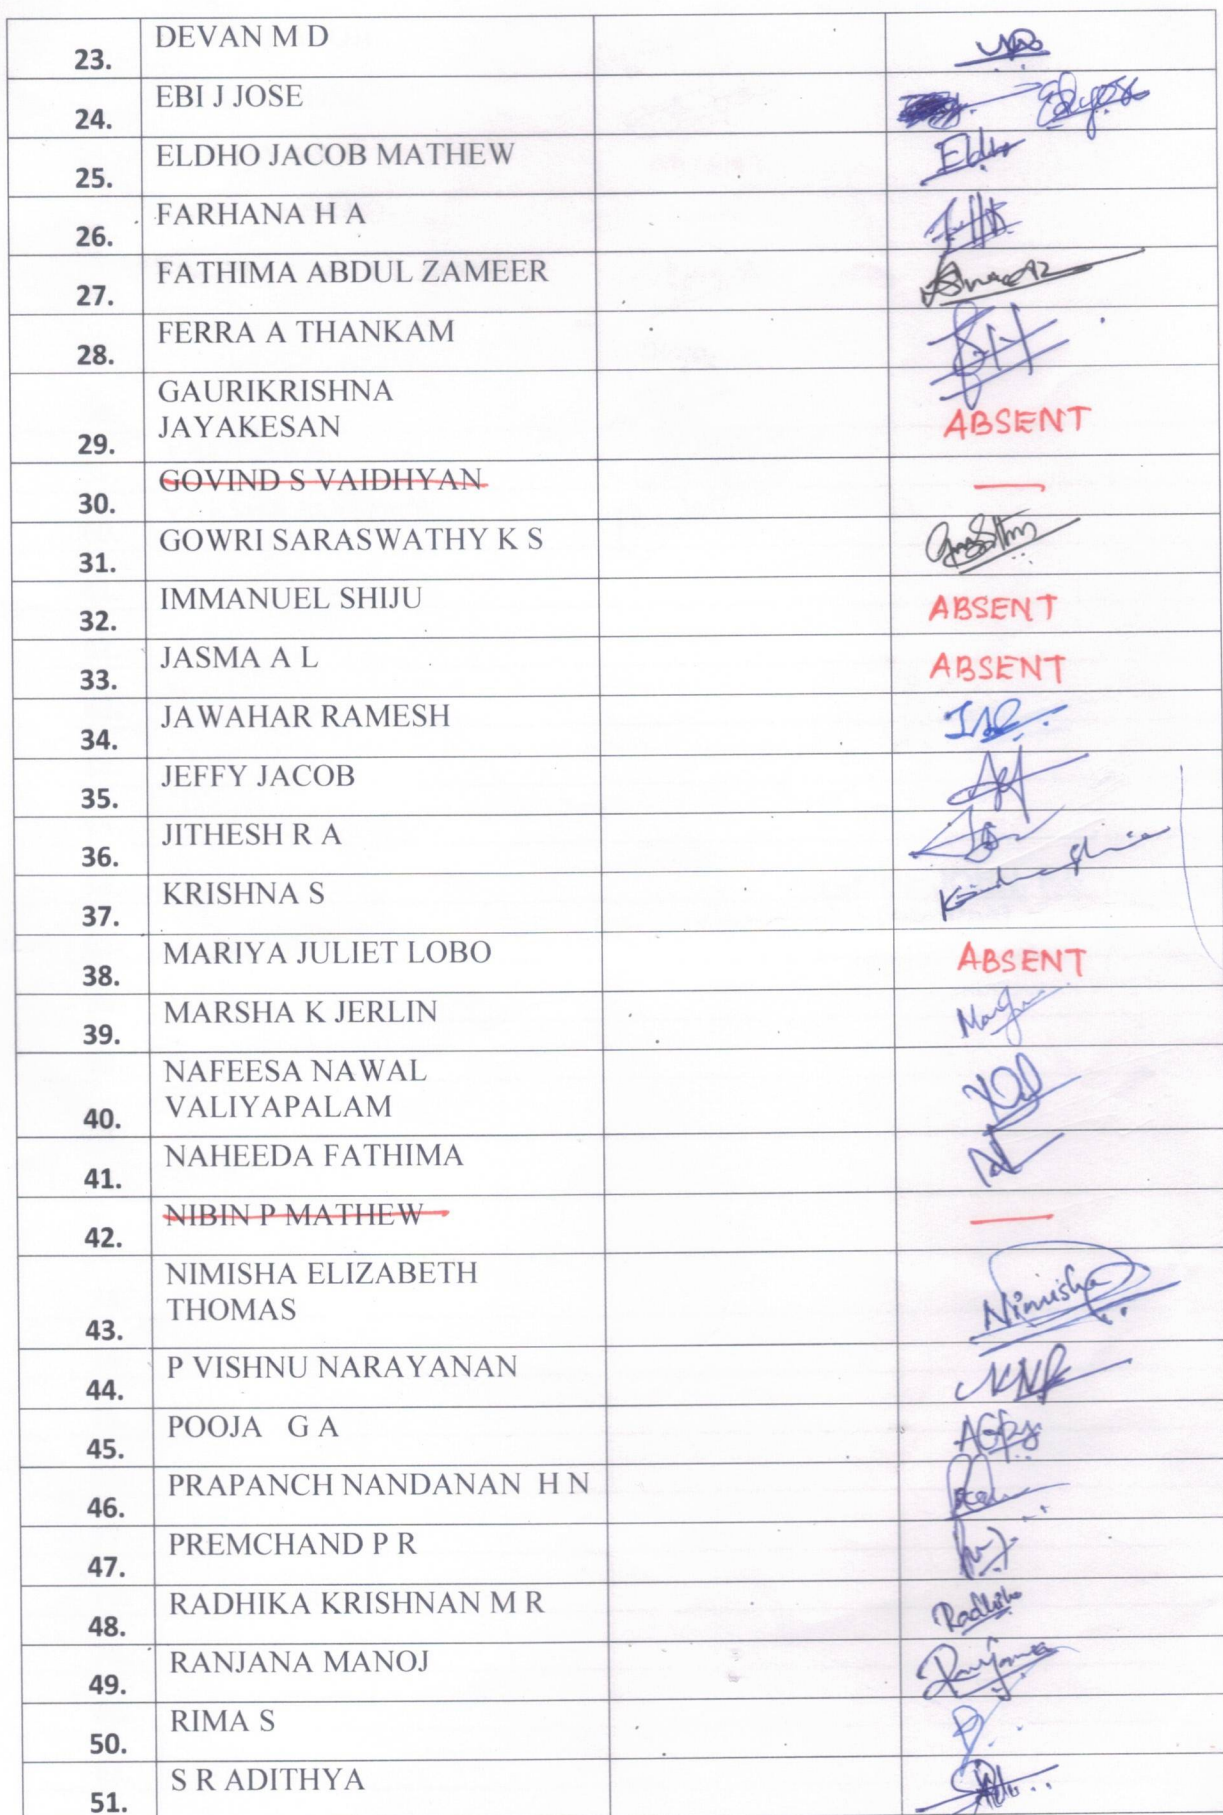 23. DEVAN M D
24. EBI J JOSE
25. ELDHO JACOB MATHEW Eldho
26. FARHANA H A
27. FATHIMA ABDUL ZAMEER
28. FERRA A THANKAM
GAURIKRISHNA
29. JAYAKESAN ABSENT
30. GOVIND S VAIDHYAN —
31. GOWRI SARASWATHY K S
32. IMMANUEL SHIJU ABSENT
33. JASMA A L ABSENT
34. JAWAHAR RAMESH
35. JEFFY JACOB
36. JITHESH R A
37. KRISHNA S
38. MARIYA JULIET LOBO ABSENT
39. MARSHA K JERLIN
NAFEESA NAWAL
40. VALIYAPALAM
41. NAHEEDA FATHIMA
42. NIBIN P MATHEW —
NIMISHA ELIZABETH
43. THOMAS Nimisha
44. P VISHNU NARAYANAN
45. POOJA G A
46. PRAPANCH NANDANAN H N
47. PREMCHAND P R
48. RADHIKA KRISHNAN M R Radhika
49. RANJANA MANOJ Ranjana
50. RIMA S
51. S R ADITHYA